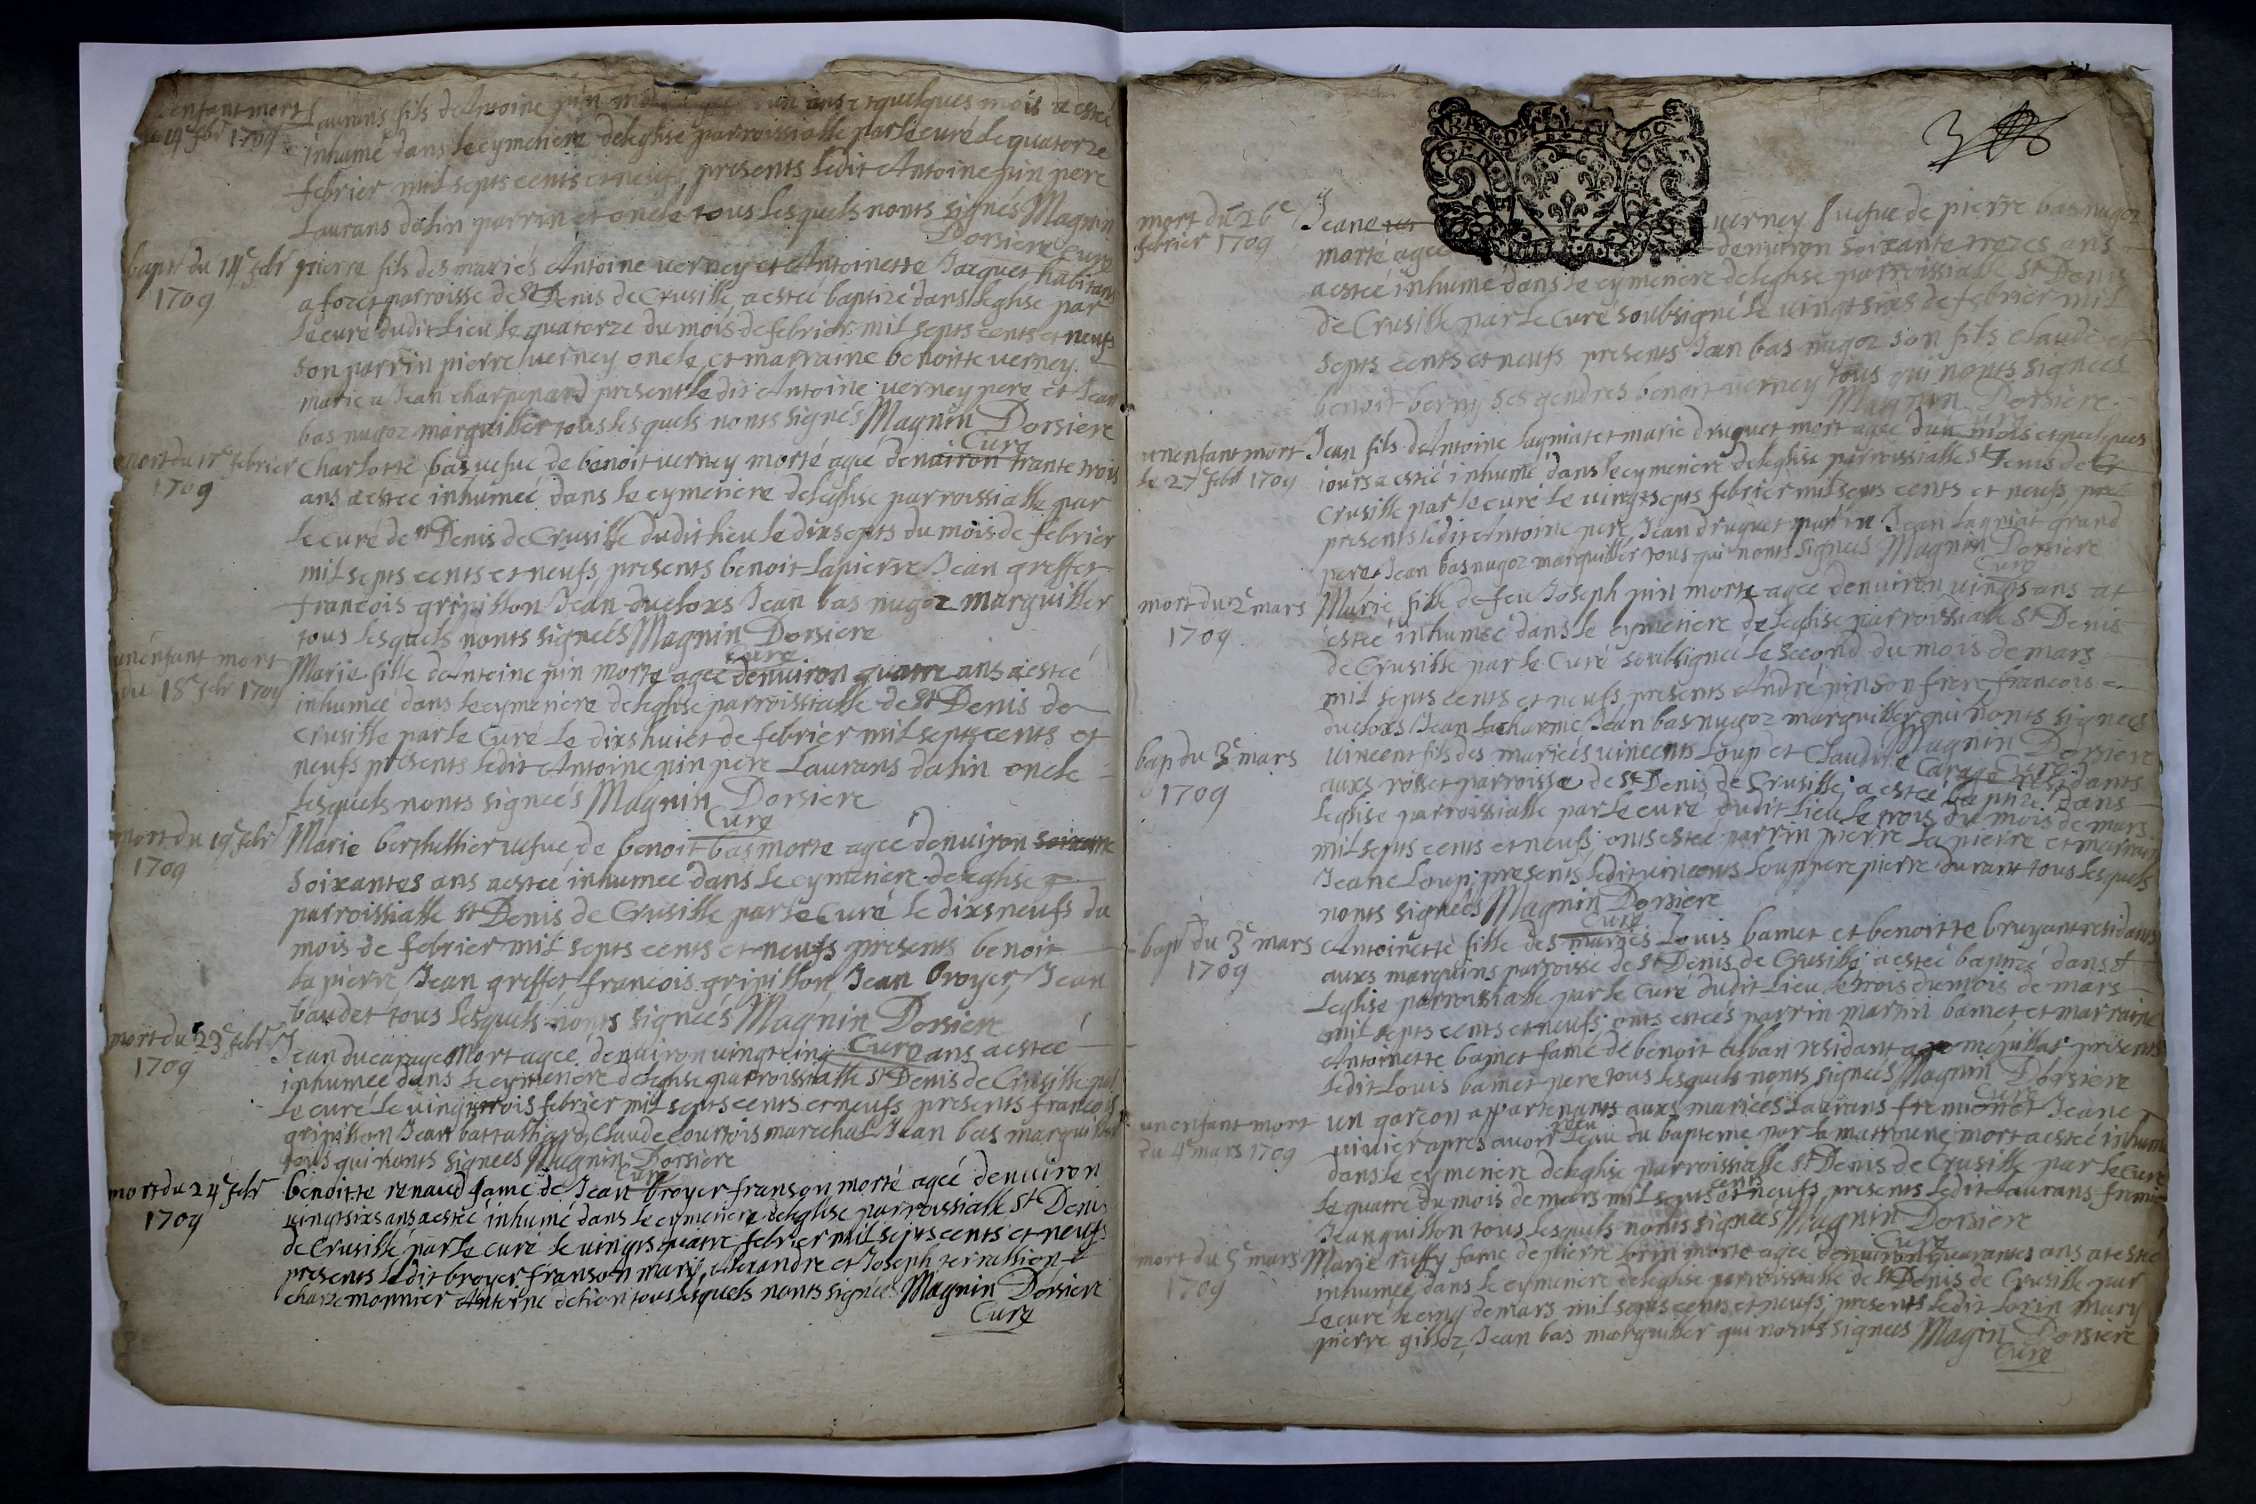 enfant mort
14e febr 1709
Laurans fils de Antoine pin mort ans et quelques mois a esté
inhumé dans le cymeriere de leglise parroissialle par le curé le quatorze
febrier mil septs cents et neufs, presents ledit Antoine pin pere
Laurans dalin parrin et oncle tous lesquels nonts signés Magnin
Dorsiere Curé
bapt du 14e febr
1709
pierre fils des mariés Antoine verney et Antoinette Jacquet habitans
a forez parroisse de St Denis de Crusille, a esteé baptizé dans leglise par
le curé dudit Lieu le quatorze du mois de febrier mil septs cents et neufs
son parrin pierre verney oncle, et marraine benoitte verney
marie a Jean charpenard present le dit Antoine verney pere et Jean
bas nugoz marguillier tous lesquels nonts signés Magnin Dorsiere
Curé
mort du 17e febrier
1709
Charlotte bas vefue de benoit verney morté ageé denuiron trante trois
ans a estee inhumeé dans le cymeriere de leglise parroissialle par
le curé de St Denis de Crusille dudit lieu le dix septs du mois de febrier
mil septs cents et neufs, presents benoit lapierre Jean greffet
francois gripillon Jean ducloxs Jean bas nugoz marguillier
tous lesquels nonts signeés Magnin Dorsiere
Curé
un enfant mort
du 18e febr 1709
Marie fille dantoine pin morte ageé denuiron quatre ans a esteé
inhumeé dans le cymeriere de leglise parroissialle de St Denis de
Crusille par le Curé le dixs huict de febrier mil septs cents et
neufs presents ledit Antoine pin pere Laurans dalin oncle
lesquels nonts signeés Magnin Dorsiere
Curé
mort du 19e febr
1709
Marie berthellier vefue de benoit bas morte ageé denuiron soixante
soixantes ans a esteé inhumeé dans le cymeriere de leglise
parroissialle St Denis de Crusille par le Curé le dixs neufs du
mois de febrier mil septs cents et neufs presents benoit
la pierre Jean greffet francois gripillon, Jean broyer, Jean
baudet tous lesquels nonts signeés Magnin Dorsiere
Curé
mort du 23e febr
1709
Jean ducarage mort ageé denuiron vingt cinq ans a esteé
inhumeé dans le cymeriere de leglise parroissialle St Denis de Crusille par
le curé le vingts trois febrier mil septs cents et neufs presents francois
gripillon Jean battalliard, Claude courtois marechal Jean bas marguillier
tous qui nonts signees Magnin Dorsiere
Curé
mort du 24e febr
1709
benoitte renaud fame de Jean broyer franson morté ageé denuiron
vingt sixs ans a esteé inhumé dans le cymeriere de leglise parroissialle St Denis
de Crusille par le curé le vingts quatre febrier mil septs cents et neufs
presents ledit broyer franson mary, alexandre et Joseph terrallion
monnier Antoine tous lesquels nonts signées Magnin Dorsiere
Curé
GEN
mort du 26e
febrier 1709
Jeane verney vefue de pierre bas nugoz
morté ageé denuiron soixante trezes ans
a esteé inhumé dans le cymeriere de leglise parroissialle St Denis
de Crusille par le Curé soubsigné le vingt sixs de febrier mil
septs cents et neufs presents Jean bas nugoz son fils claude et
benoit berny ses gendres benoit verney tous qui nonts signees
Magnin Dorsiere
Curé
un enfant mort
le 27 febr 1709
Jean fils de Antoine lagniat et marie druguet mort ageé dun mois et quelques
iours a esteé inhumé dans le cymeriere de leglise parroissialle St Denis de
Crusille par le curé le vingt septs febrier mil septs cents et neufs
presents ledit antoine pere Jean druguet parrin Jean lagniat grand
pere, Jean bas nugoz marguillier tous qui nonts signees Magnin Dorsiere
Curé
mort du 2e mars
1709
Marie fille de feu Joseph pin morte ageé denuiron vingts ans at
esteé inhumeé dans le cymeriere de leglise parroissialle St Denis
de Crusille par le Curé soubsigneé le second du mois de mars
mil septs cents et neufs, presents André pin son frere, francois
ducloxs Jean lacharme Jean bas nugoz marguillier qui nonts signees
Magnin Dorsiere
Curé
bap du 3e mars
1709
vincent fils des marieés vincents Loup et Claudine Carage residants
auxs rosset parroisse de St Denis de Crusille, a esteé baptizé dans
leglise parroissialle par le curé dudit Lieu le trois du mois de mars
mil septs cents et neufs, onts esteé parrin pierre la pierre et marraine
Jeane Loup; presents ledit vincents Loup pere pierre durant tous lesquels
nonts signeés Magnin Dorsiere
Curé
bapt du 3e mars
1709
Antoinette fille des marieés Louis bamet et benoitte bruyant residants
auxs marguins parroisse de St Denis de Crusille a esteé baptizé dans
Leglise parroissialle par le Curé dudit Lieu le trois du mois de mars
mil septs cents et neufs; onts esteés parrin martin bamet et marraine
Antoinette bamet fame de benoit alban residant a presents
ledit Louis bamet pere tous lesquels nonts signeés Magnin Dorsiere
Curé
un enfant mort
du 4e mars 1709
un garcon appartenants auxs marieés Laurans fremion et Jeane
vivier apres avoir receu Leau du bapteme par la matroune mort a esteé inhumé
dans le cymeriere de leglise parroissialle St Denis de Crusille par le Curé
Le quatre du mois de mars mil septs cents et neufs, presents ledit Laurans
Jean guillon tous lesquels nonts signeés Magnin Dorsiere
Curé
mort du 5e mars
1709
Marie ruffy fame de pierre lorin morte ageé denuiron quarantes ans at esteé
inhumeé, dans le cymeriere de leglise parroissialle de St Denis de Crusille par
Le curé le cinq de mars mil septs cents et neufs; presents ledit Lorin mary
pierre gilloz, Jean bas marguillier qui nonts signees Magnin Dorsiere
Curé